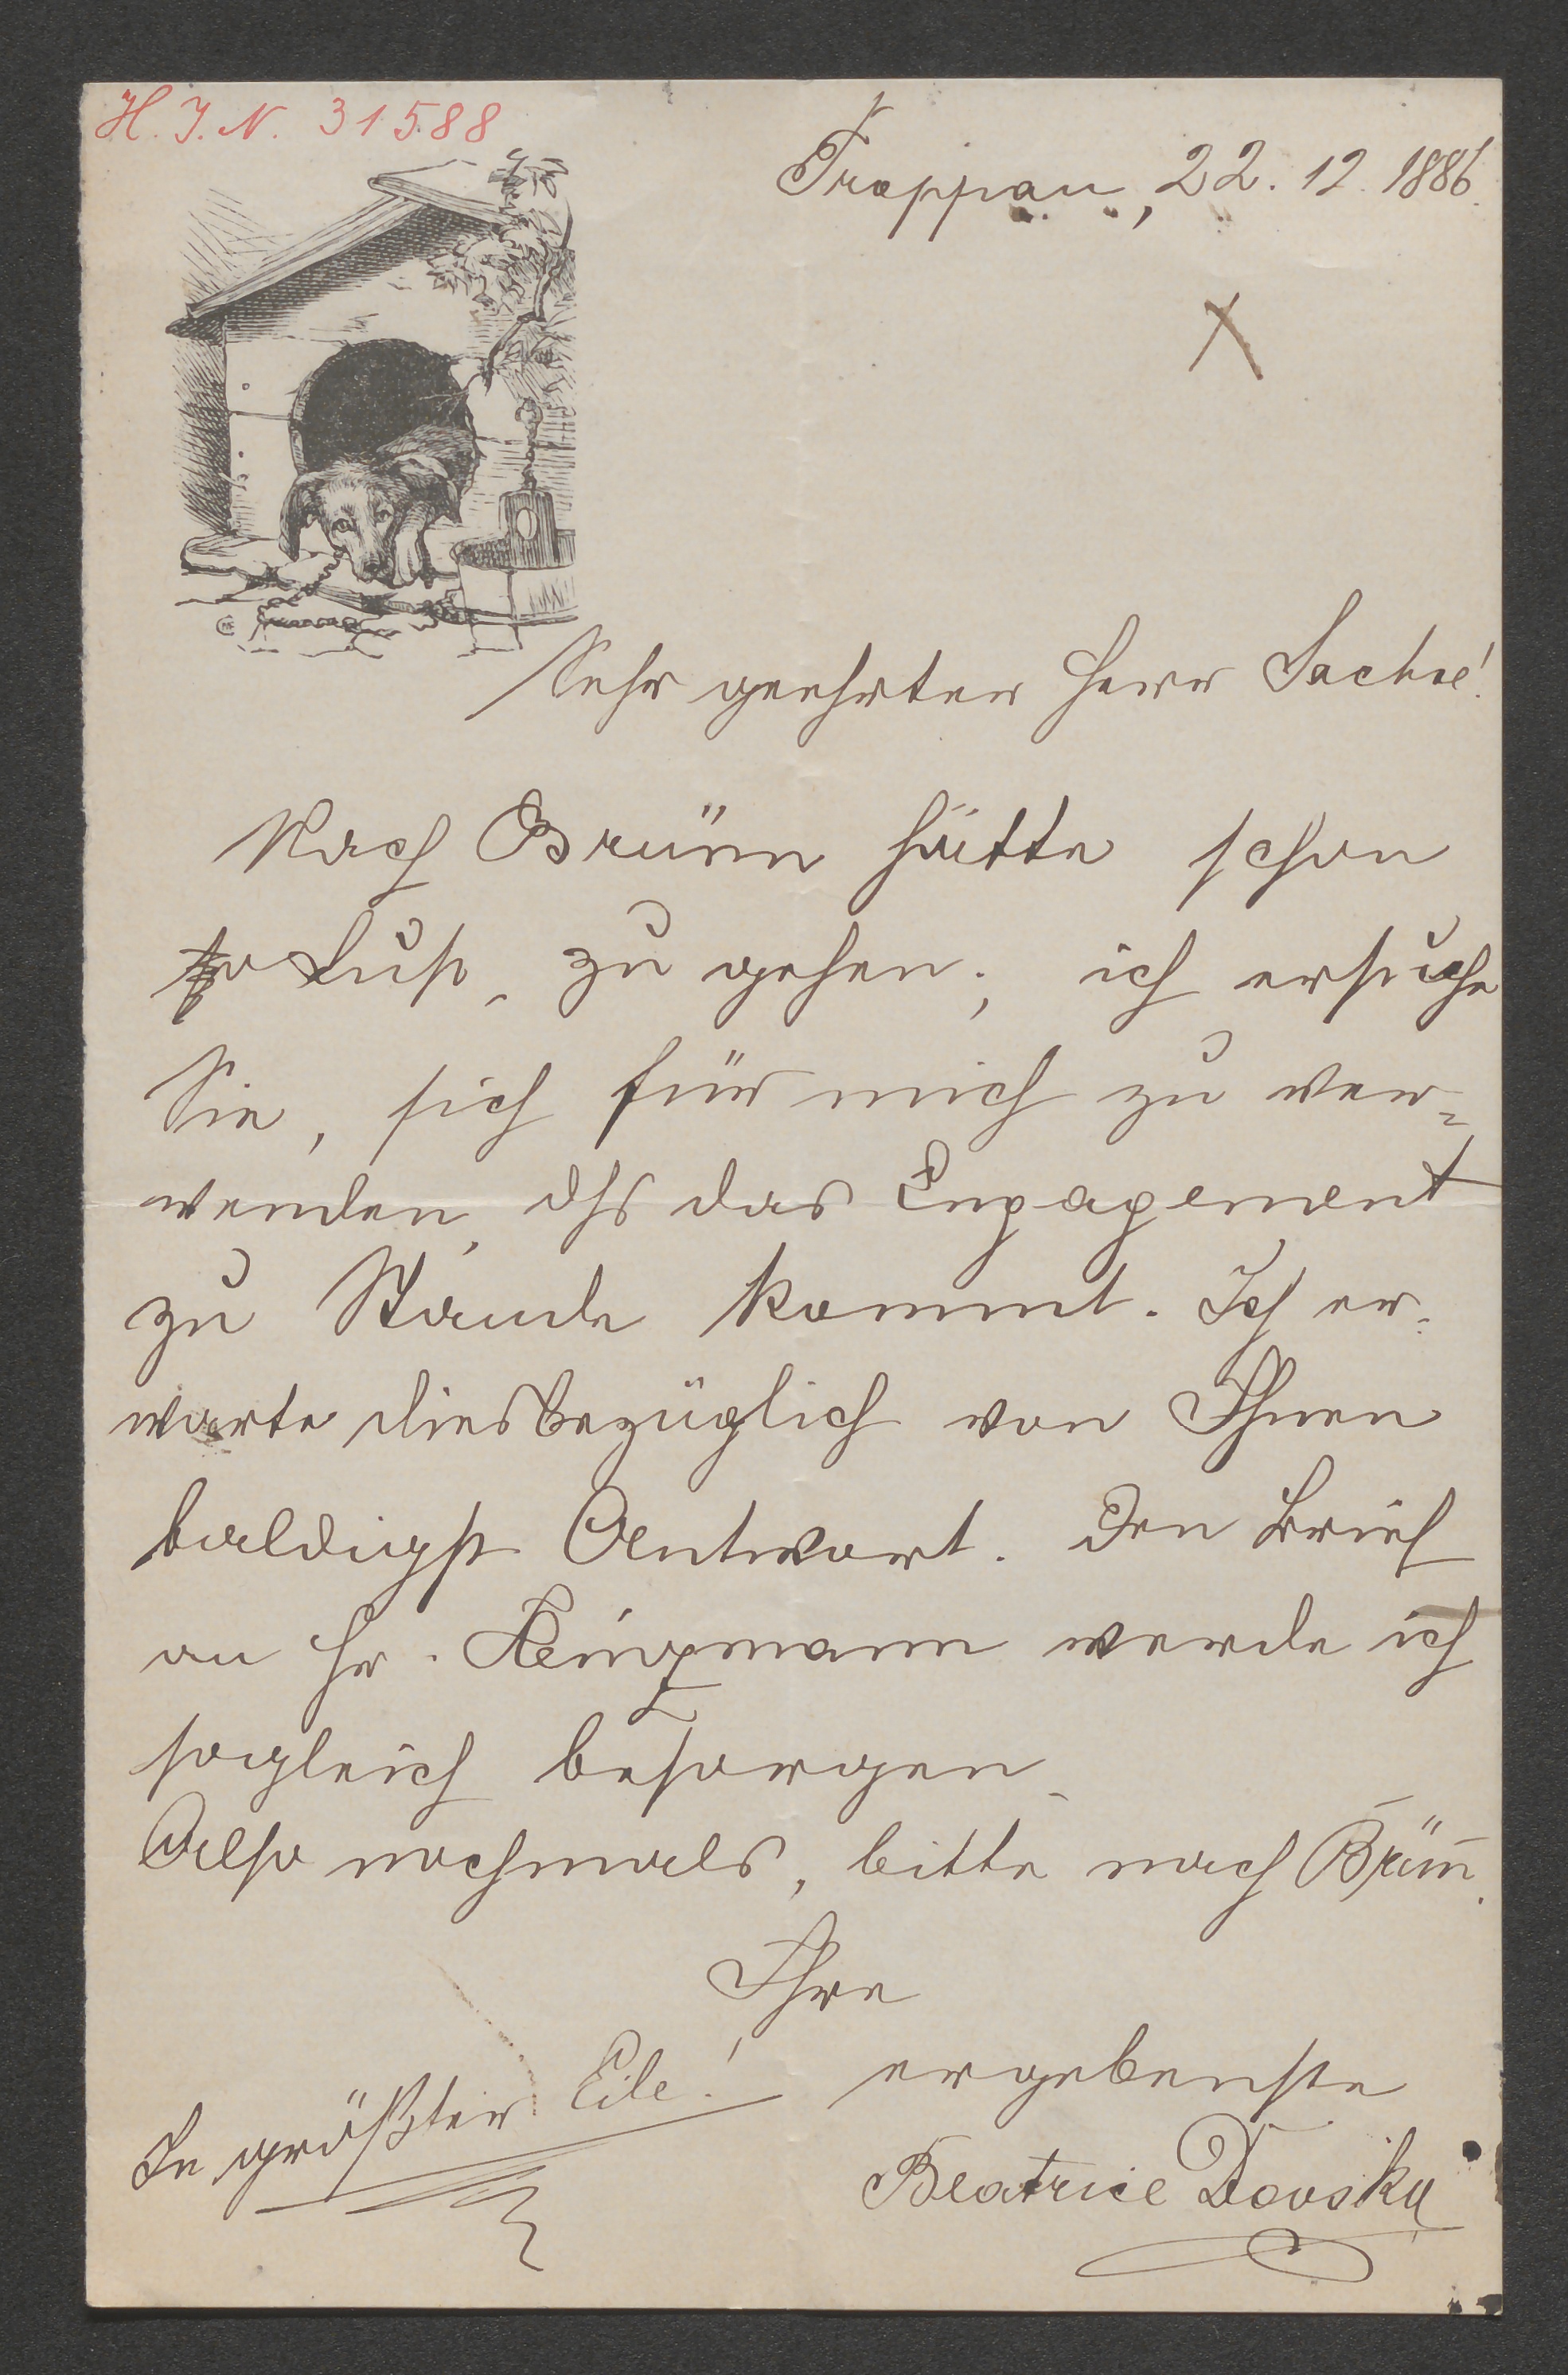 H. I. N. 31588
Troppau, 22. 12. 1886.
Sehr geehrter Herr Sachse!
Nach Brünn hätte schon
Lust, zu gehen; ich ersuche
Sie, sich für mich zu ver=
wenden, dſs das Engagement
zu Stande kommt. Ich er=
warte diesbezüglich von Ihnen
baldigst Antwort. Den Brief
an Hr. werde ich
sogleich besorgen.
Also nochmals, bitte nach Brün̅.
Ihre
ergebenste
In größter Eile!
Beatrice Dovsky